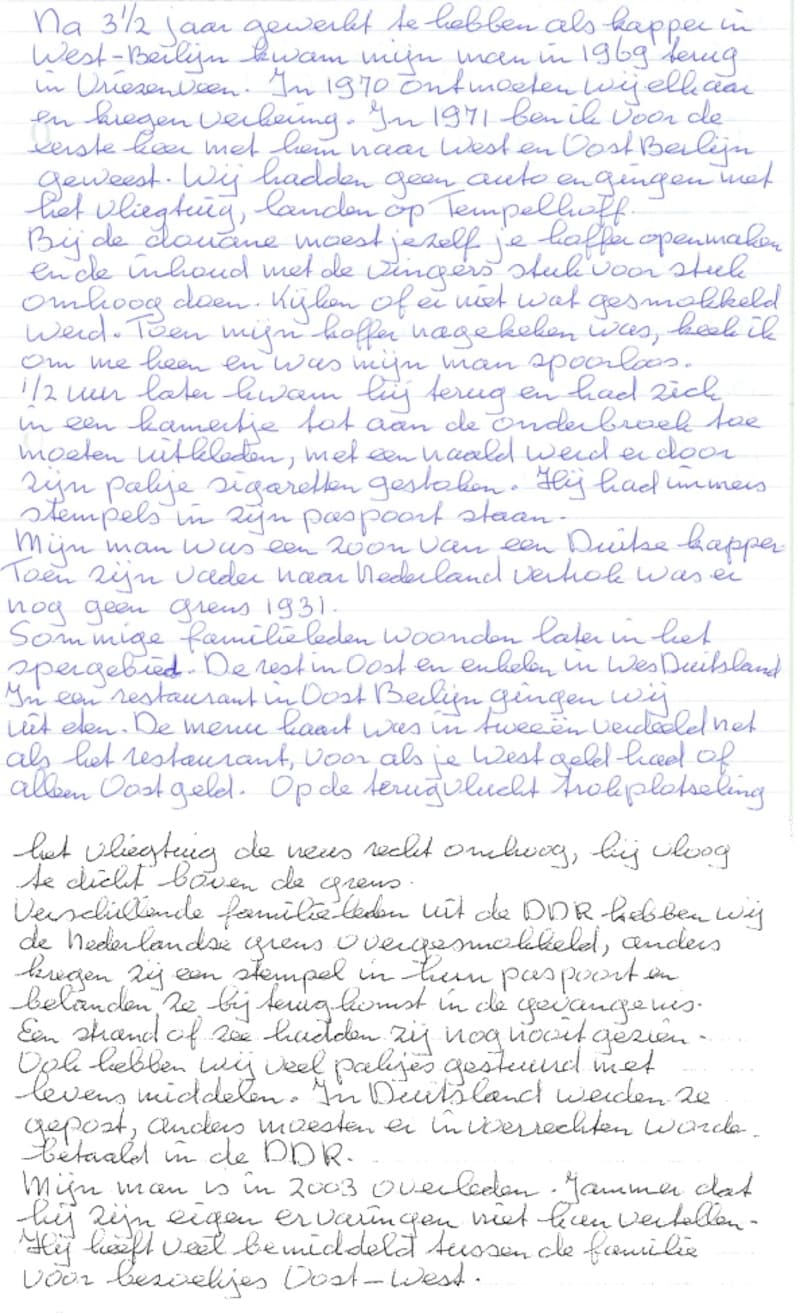 Na 3 1/2 jaar gewerkt te hebben als kapper in
West-Berlijn kwam mijn man in 1969 terug
in Vriezenveen. In 1970 ontmoeten wij elkaar
en kregen verkering. In 1971 ben ik voor de
eerste keer met hem naar West en Oost Berlijn
geweest. Wij hadden geen auto en gingen met
het vliegtuig, landen op Tempelhoff.
Bij de douane moest je zelf je koffer openmaken
en de inhoud met de vingers stuk voor stuk
omhoog doen. Kijken of er niet wat gesmokkeld
werd. Toen mijn koffer nagekeken was, keek ik
om me heen en was mijn man spoorloos.
1/2 uur later kwam hij terug en had zich
in een kamertje tot aan de onderbroek toe
moeten uitkleden, met een naald werd er door
zijn pakje sigaretten gestoken. Hij had immers
stempels in zijn paspoort staan.
Mijn man was een zoon van een Duitse kapper
Toen zijn vader naar Nederland vertrok was er
nog geen grens 1931.
Sommige familieleden woonden later in het
spergebied. De rest in Oost en enkelen in Wes Duitsland
In een restaurant in Oost Berlijn gingen wij
uit eten. De menu kaart was in tweeën verdeeld net
als het restaurant, voor als je West geld had of
alleen Oost geld. Op de terugvlucht trok plotseling
het vliegtuig de neus recht omhoog, hij vloog
te dicht boven de grens.
Verschillende familieleden uit de DDR hebben wij
de Nederlandse grens overgesmokkeld, anders
kregen zij een stempel in hun paspoort en
belanden ze bij terugkomst in de gevangenis.
Een strand of zee hadden zij nog nooit gezien.
Ook hebben wij veel pakjes gestuurd met
levensmiddelen. In Duitsland werden ze
gepost, anders moesten er invoerrechten worde
betaald in de DDR.
Mijn man is in 2003 overleden. Jammer dat
hij zijn eigen ervaringen niet kan vertellen.
Hij heeft veel bemiddeld tussen de familie
voor bezoekjes Oost-West.